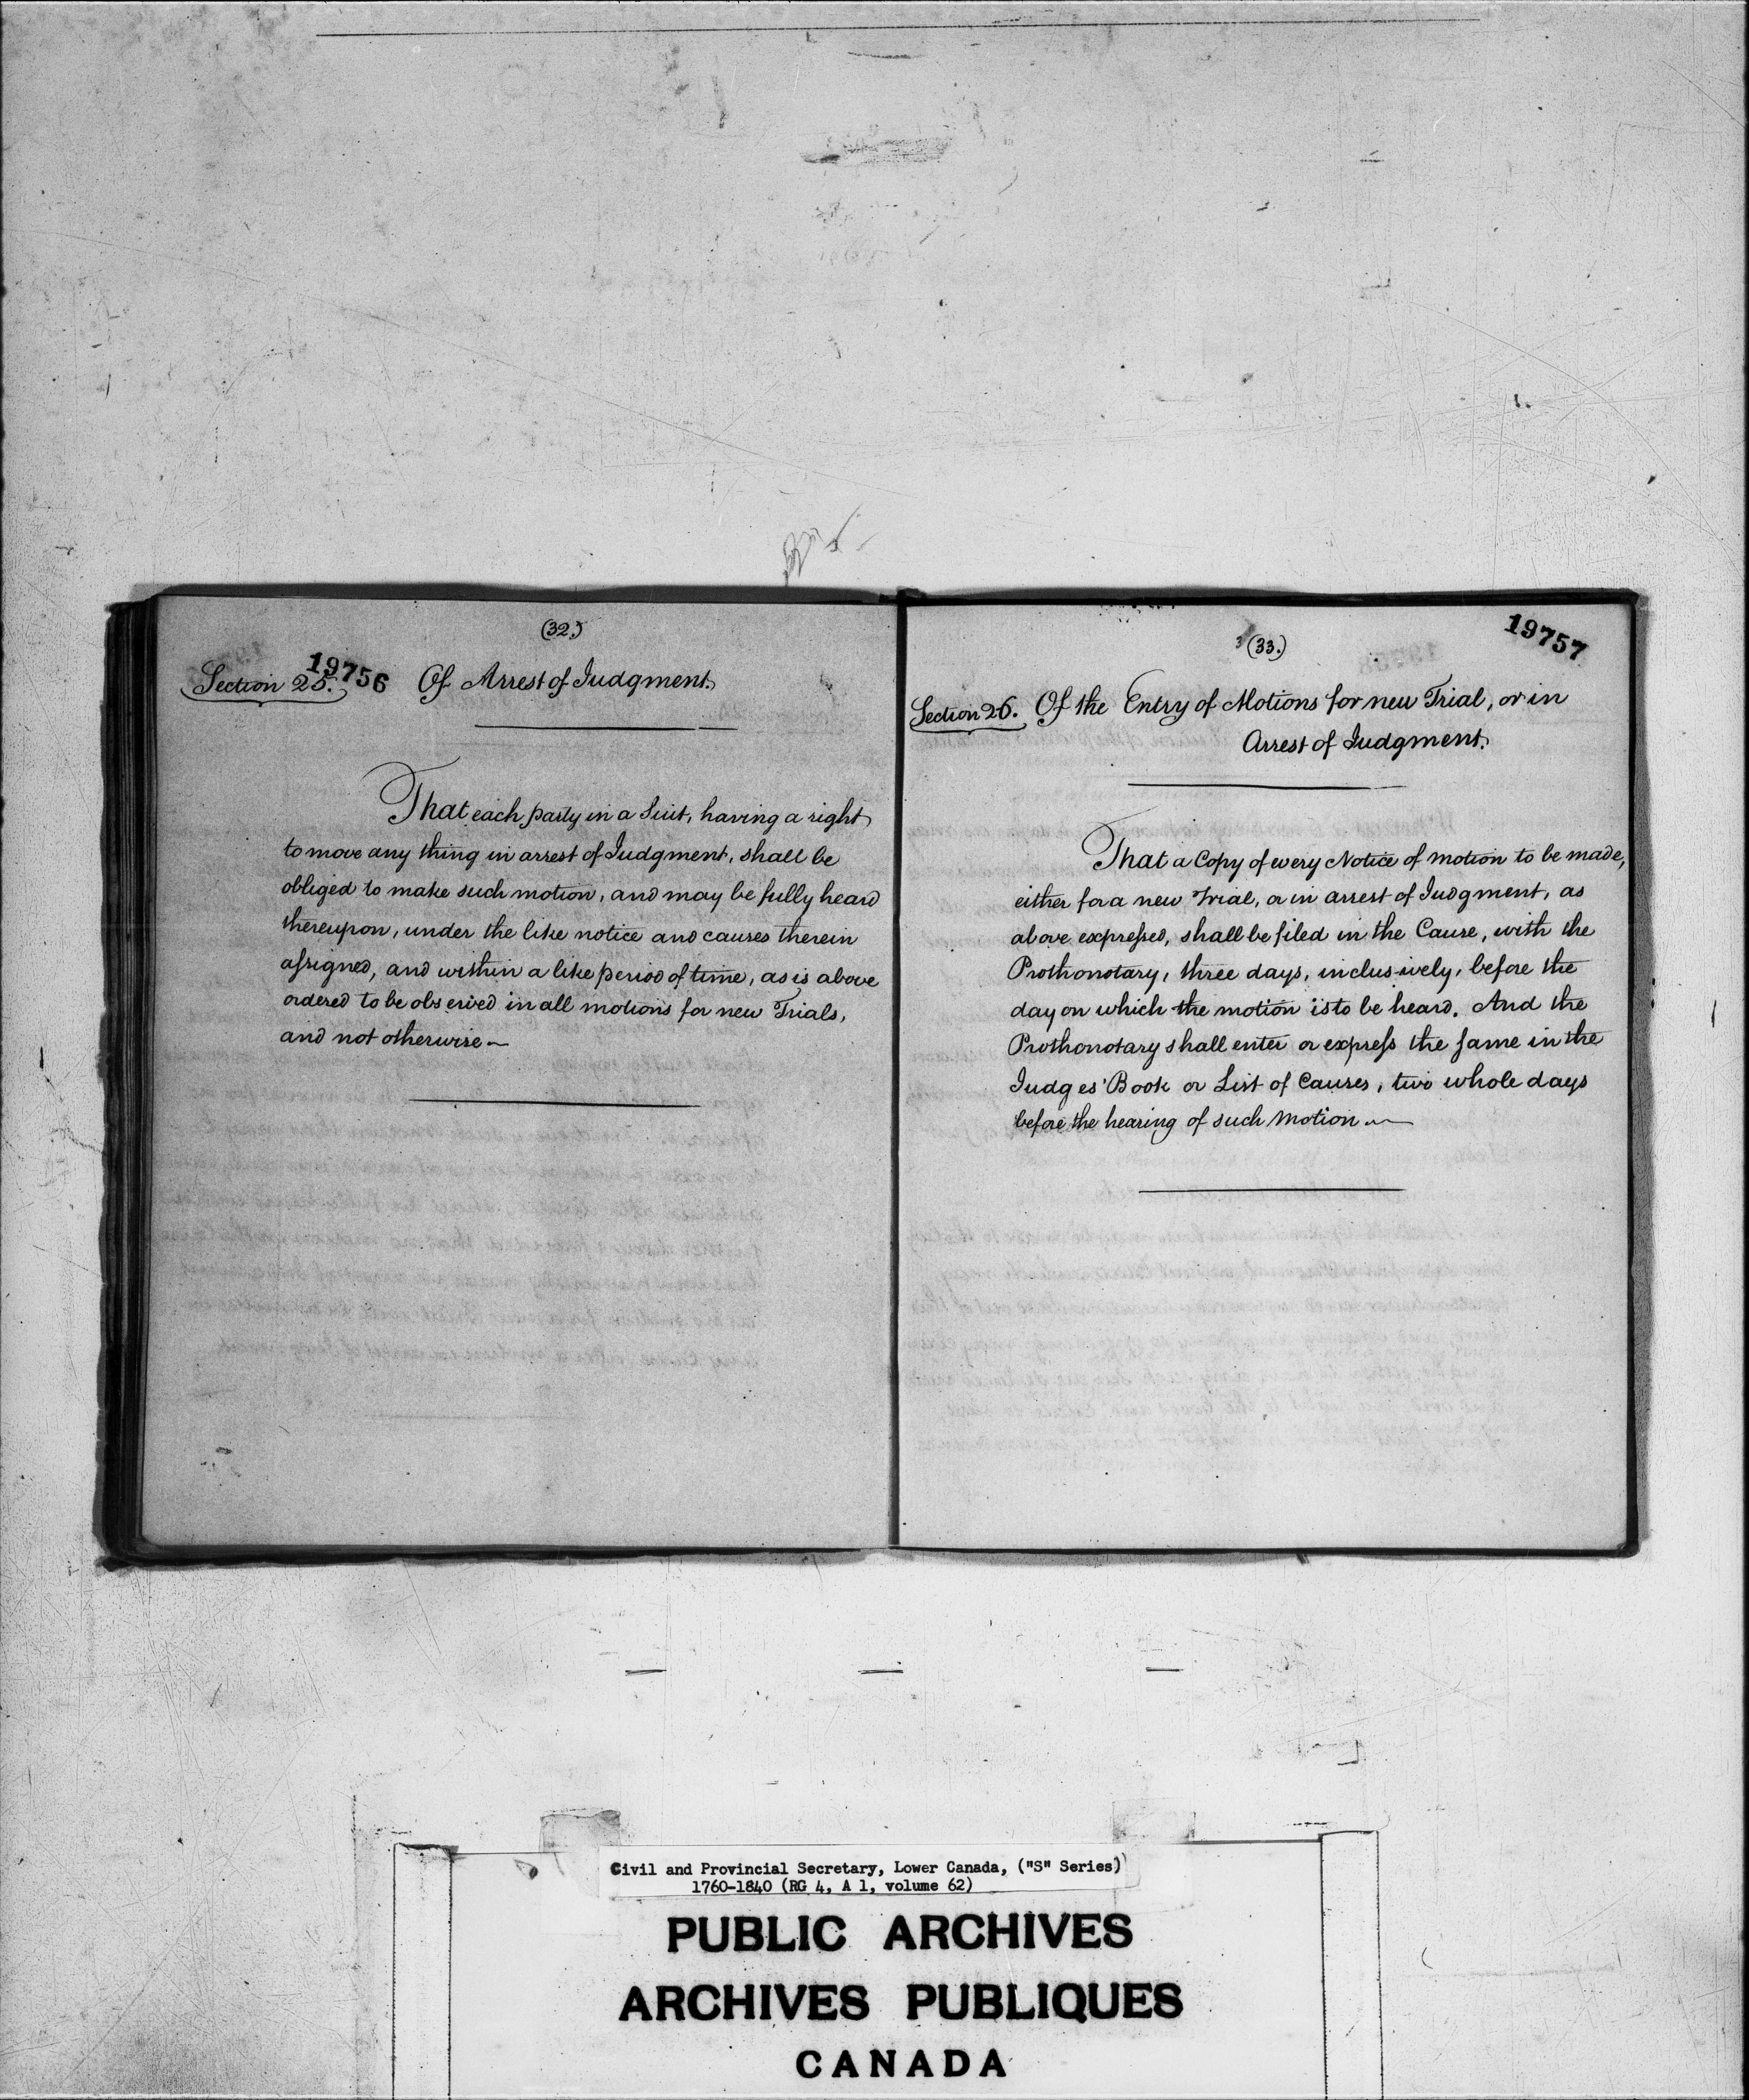 (32.)
19756
Section 25. Of Arrest of Judgment.
That each party in a Suit, having a right
to move any thing in arrest of Judgment, shall be
obliged to make such motion, and may be fully heard
thereupon, under the like notice and causes therein
assigned, and within a like period of time, as is above
ordered to be observed in all motions for new Trials,
and not otherwise —
(33.)
19757
Section 26. Of the Entry of Motions for new Trial, or in
Arrest of Judgment.
That a Copy of every Notice of motion to be made,
either for a new Trial, or in arrest of Judgment, as
above expressed, shall be filed in the Cause, with the
Prothonotary, three days, inclusively, before the
day on which the motion is to be heard. And the
Prothonotary shall enter or express the same in the
Judges' Book or List of Causes, two whole days
before the hearing of such motion. —
Civil and Provincial Secretary, Lower Canada, ("S" Series)
1760-1840 (RG 4, A 1, volume 62)
PUBLIC ARCHIVES
ARCHIVES PUBLIQUES
CANADA